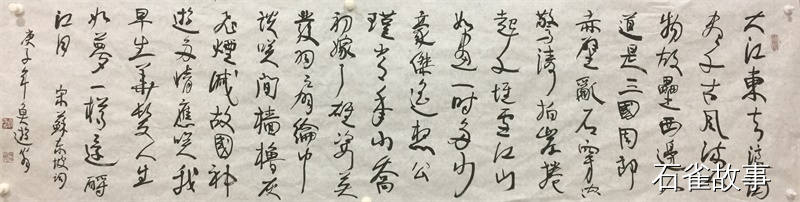 大江東去浪淘
盡千古風流人
物故壘西邊人
道是三國周郎
赤壁亂石穿空
驚濤拍岸捲
起千堆雪江山
如畫一時多少
豪傑遙想公
瑾當年小喬
初嫁了雄姿英
發羽扇綸巾
談笑間檣櫓灰
飛煙滅故國神
遊多情應笑我
早生華髮人生
如夢一樽還酹
江月 宋蘇東坡詞
庚子年
石雀故事